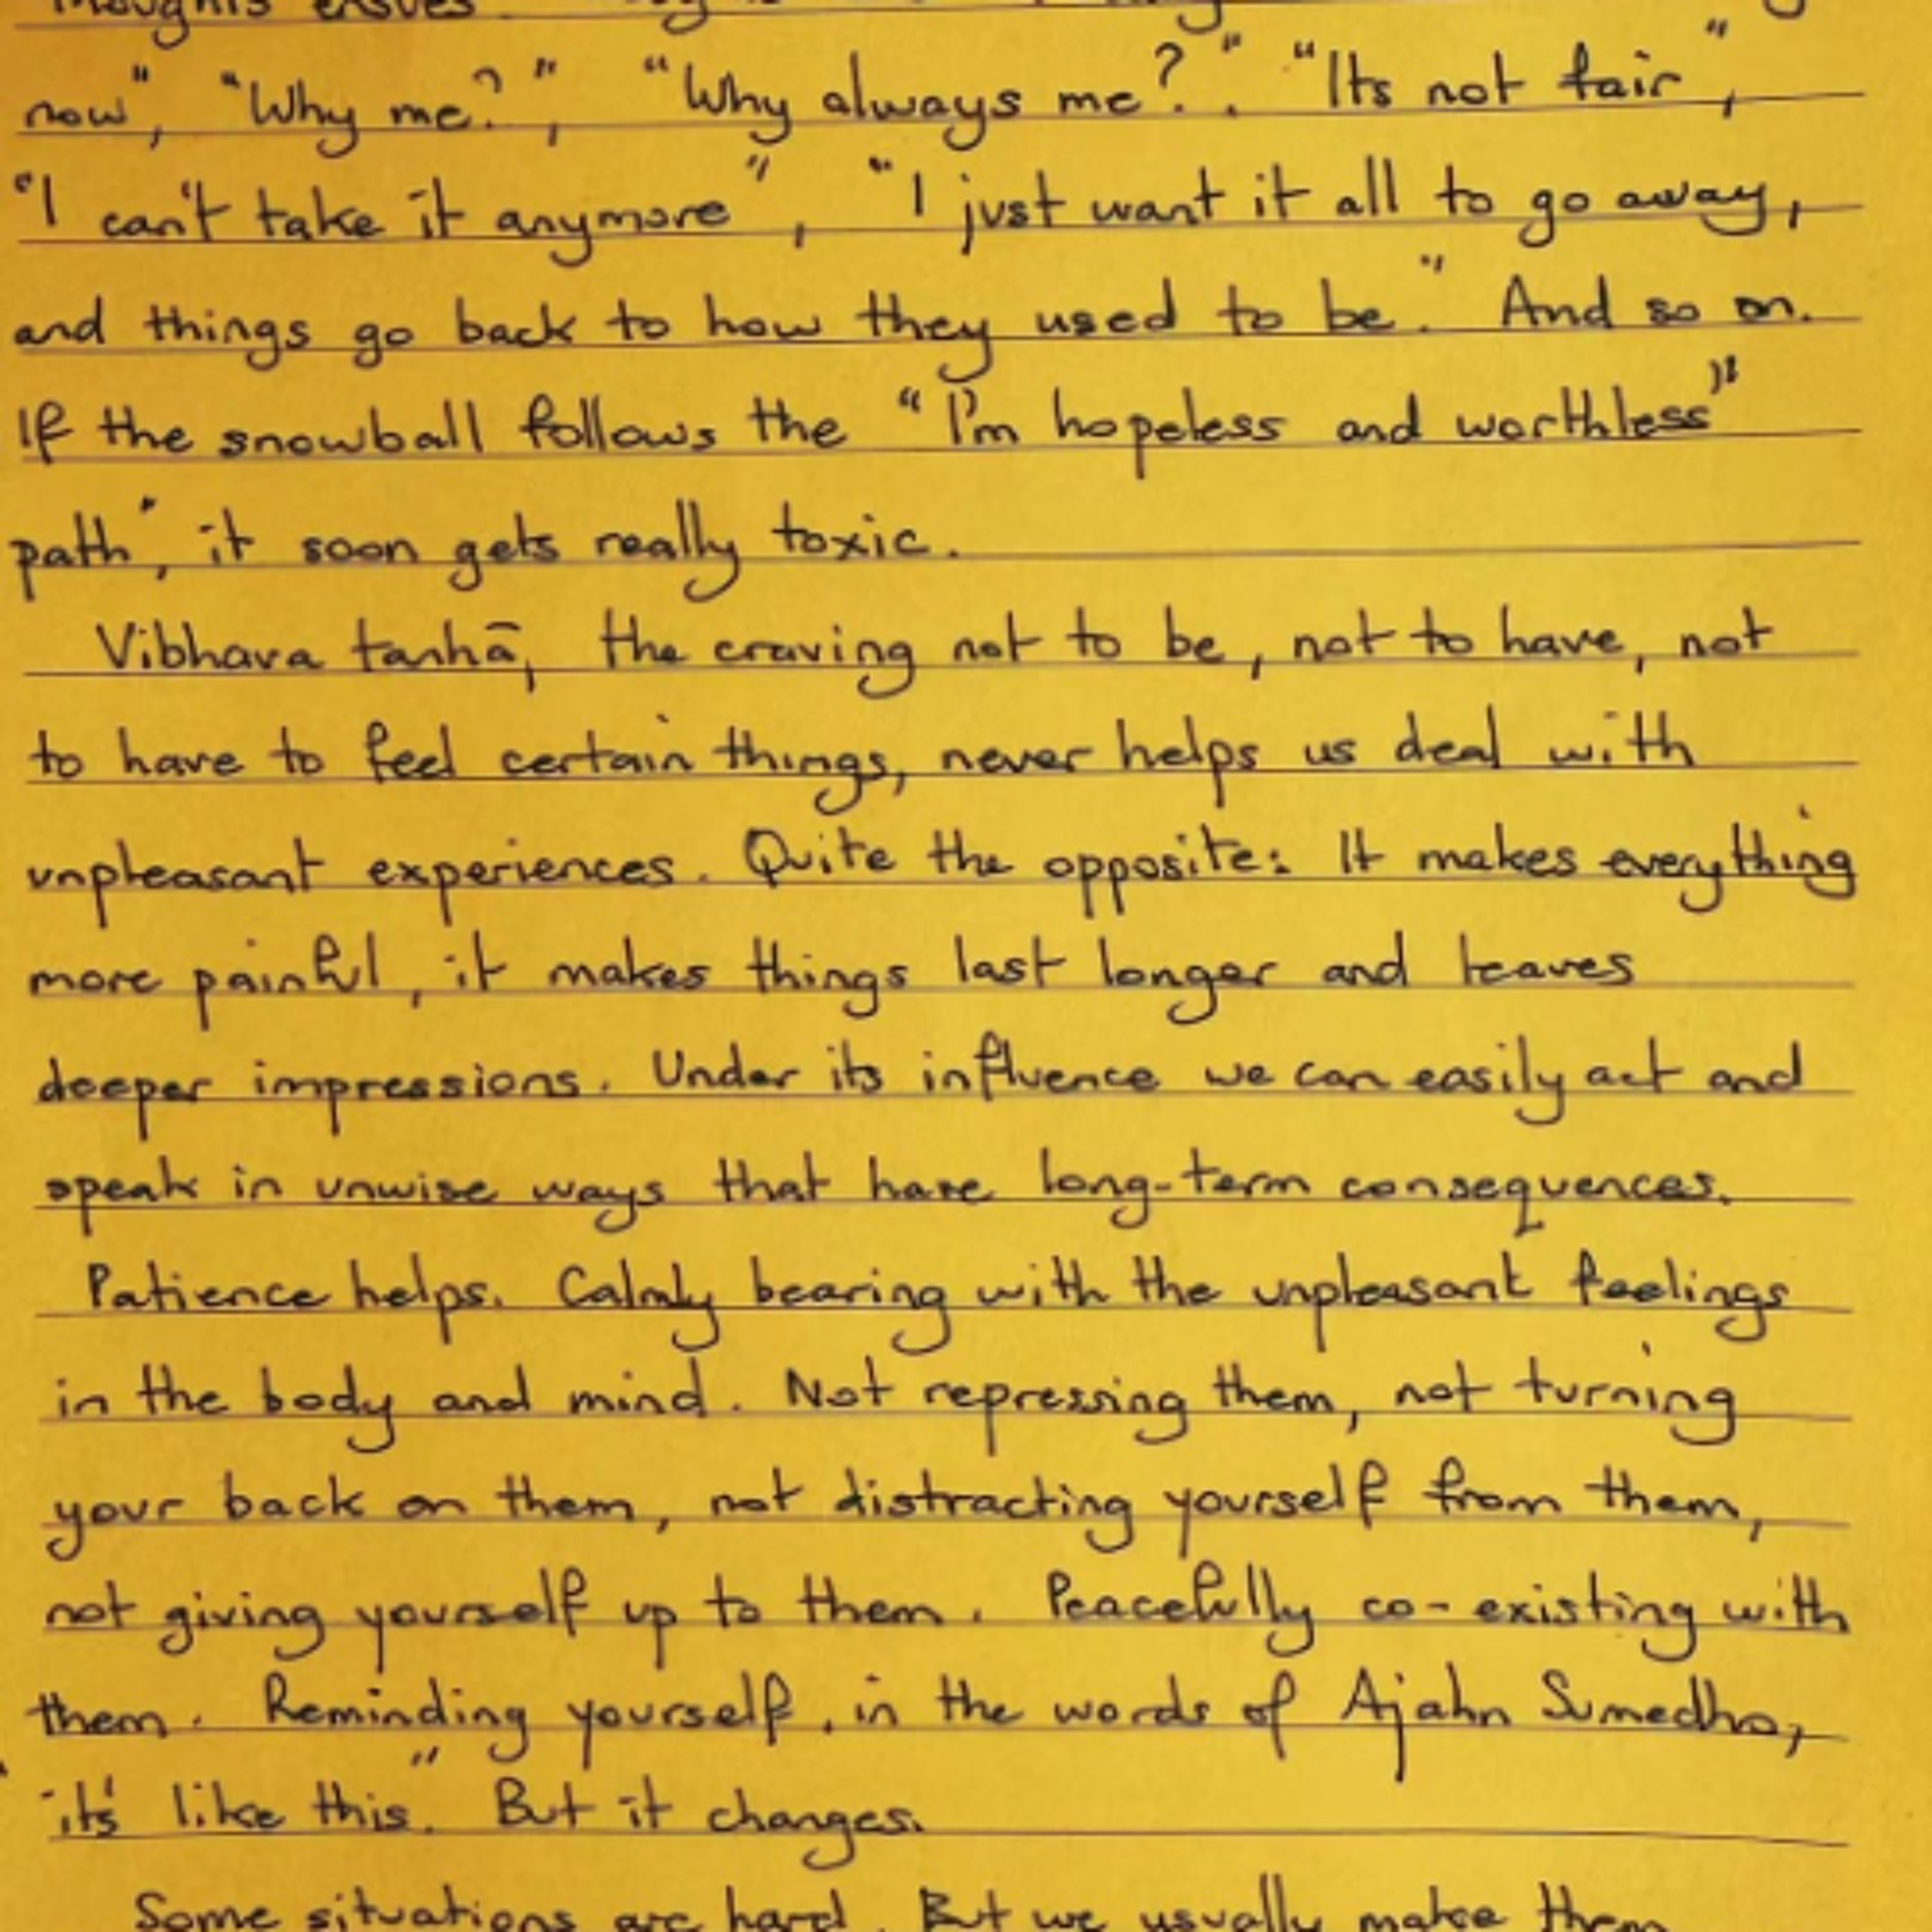 thoughts ensues.
now", "Why me?", "Why always me?". "Its not fair",
"I can't take it anymore", "I just want it all to go away,
and things go back to how they used to be." And so on.
If the snowball follows the "I'm hopeless and worthless"
path", it soon gets really toxic.
Vibhava tanhā, the craving not to be, not to have, not
to have to feel certain things, never helps us deal with
unpleasant experiences. Quite the opposite: It makes everything
more painful, it makes things last longer and leaves
deeper impressions. Under its influence we can easily act and
speak in unwise ways that have long-term consequences.
Patience helps. Calmly bearing with the unpleasant feelings
in the body and mind. Not repressing them, not turning
your back on them, not distracting yourself from them,
not giving yourself up to them. Peacefully co-existing with
them. Reminding yourself, in the words of Ajahn Sumedho,
"it's like this". But it changes.
Some situations are hard. But we usually make them